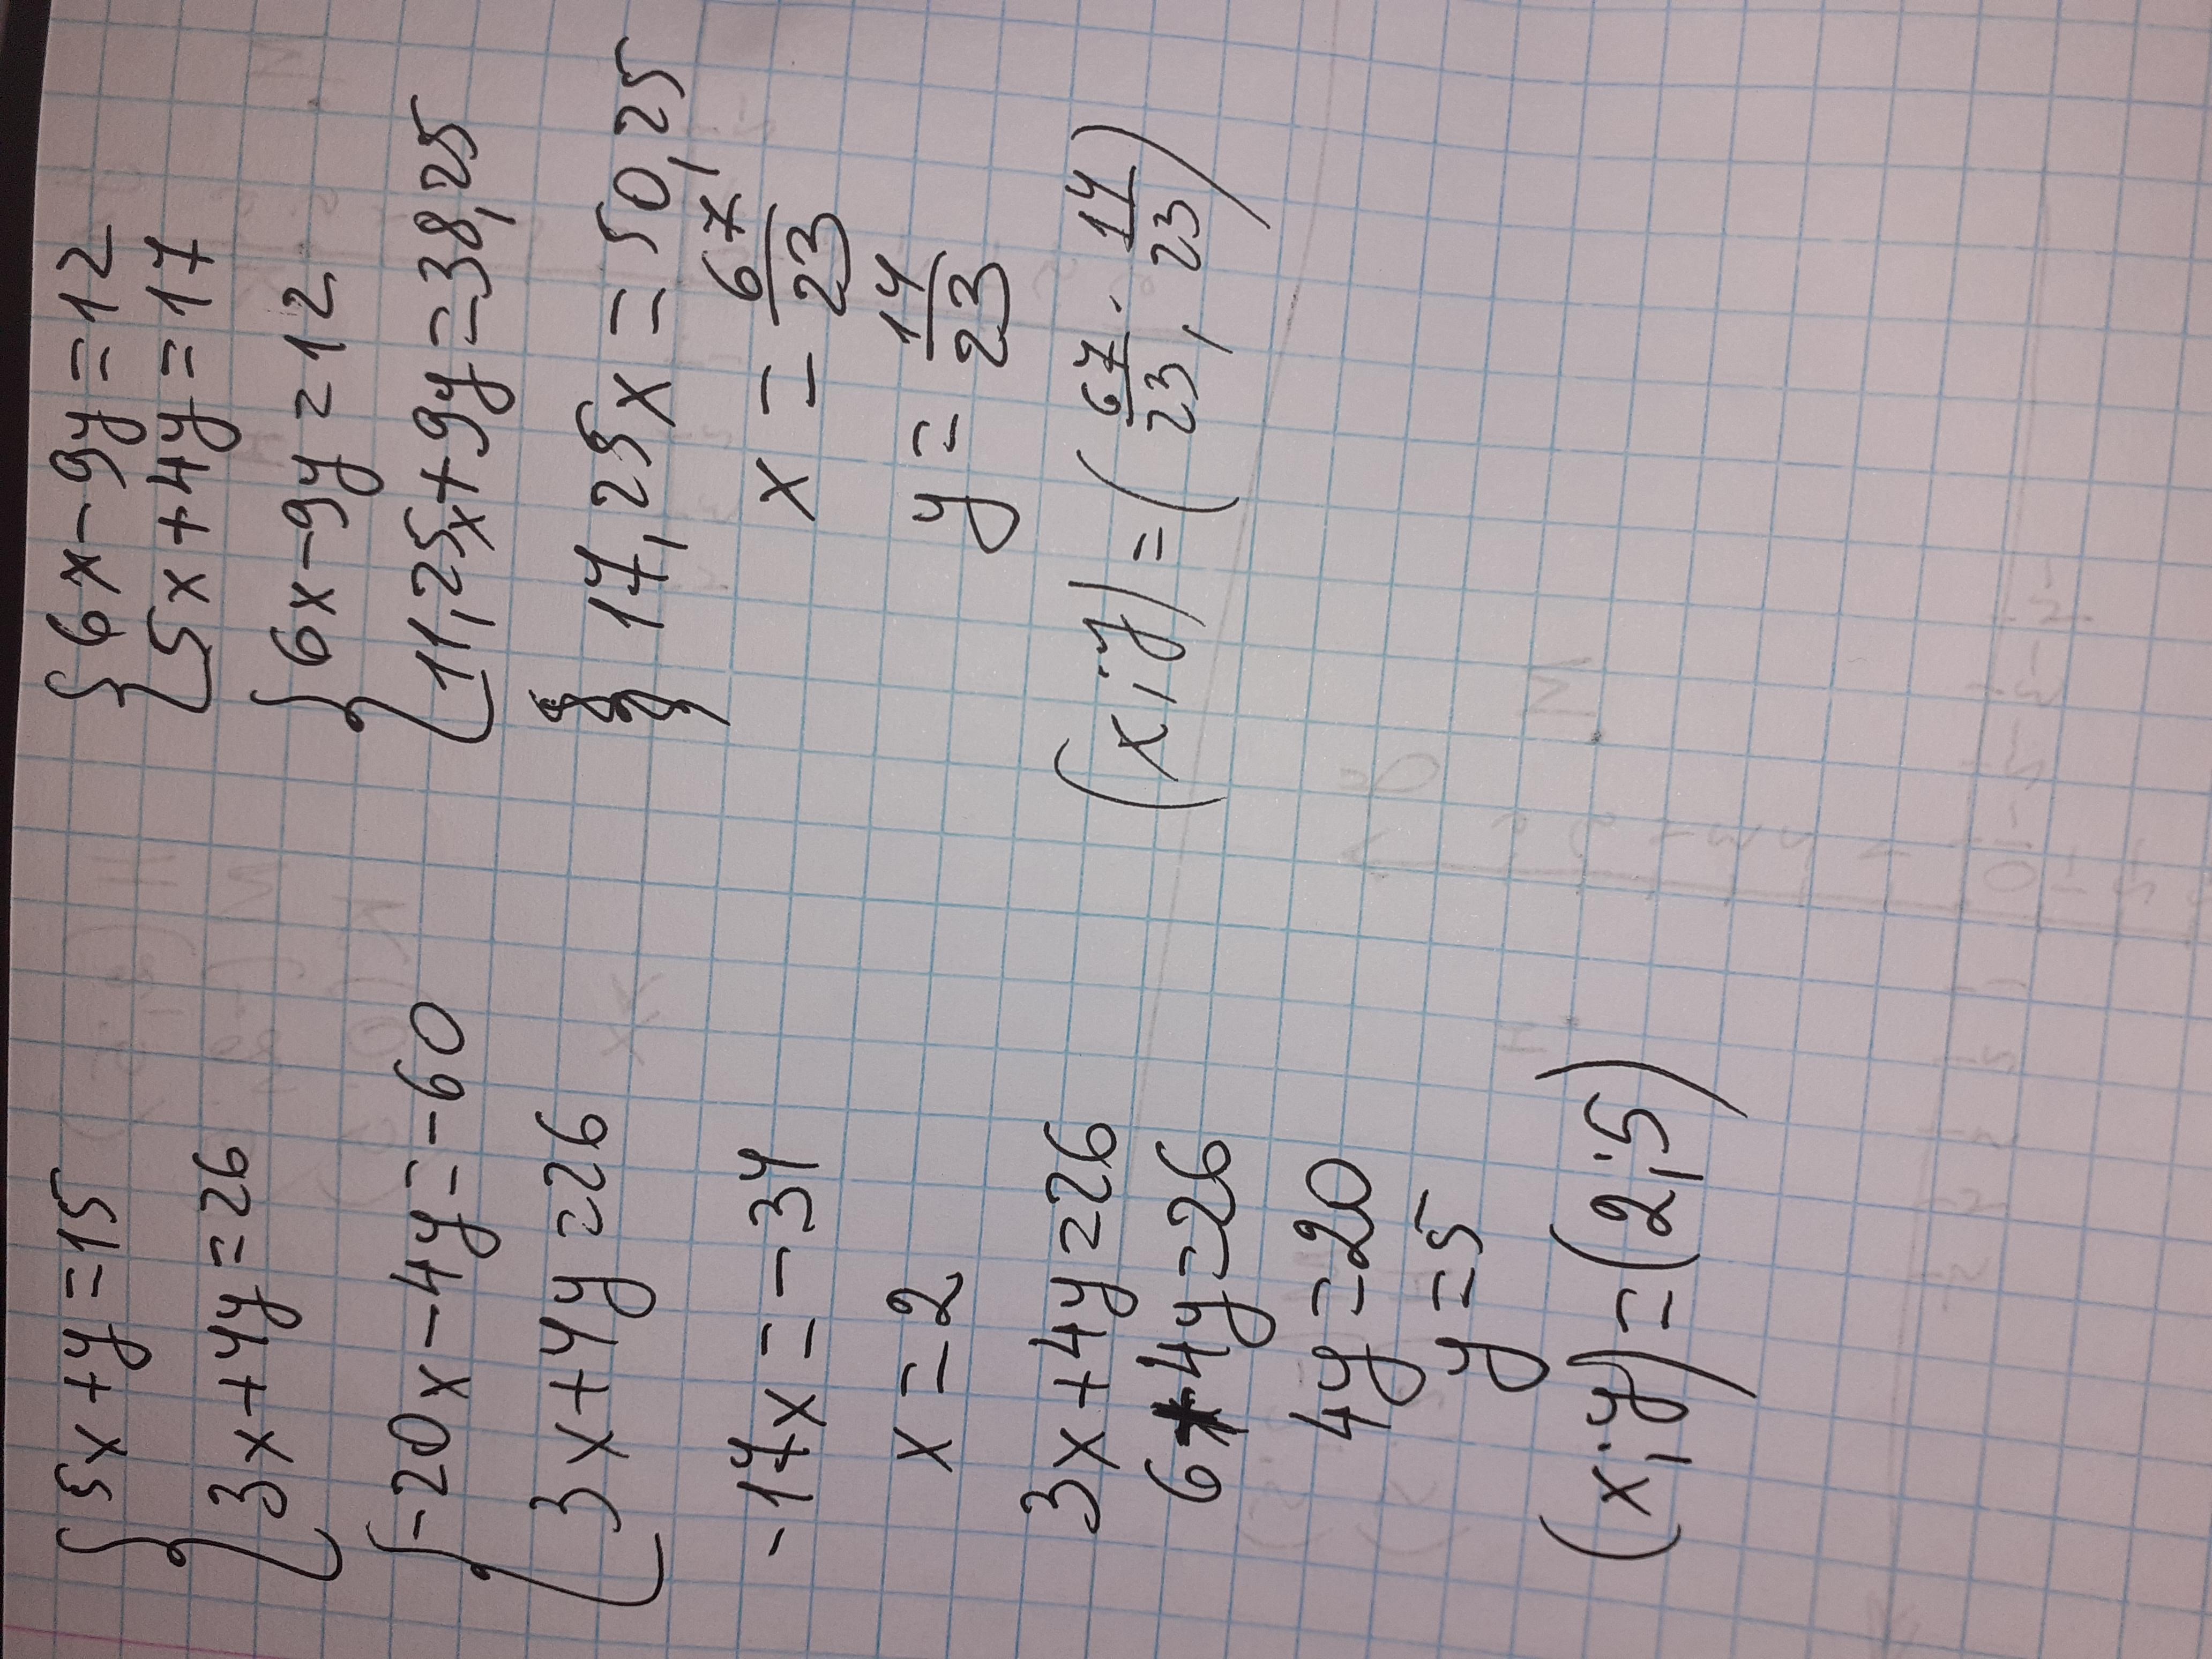 {5x+y=15
3x+4y=26
{-20x-4y=-60
3x+4y=26
-17x=-34
x=2
3x+4y=26
6+4y=26
4y=20
y=5
(x;y)=(2;5)
{6x-9y=12
5x+4y=17
{6x-9y=12
11,25x+9y=38,25
17,25x=50,25
x=67/23
y=14/23
(x;y)=(67/23;14/23)